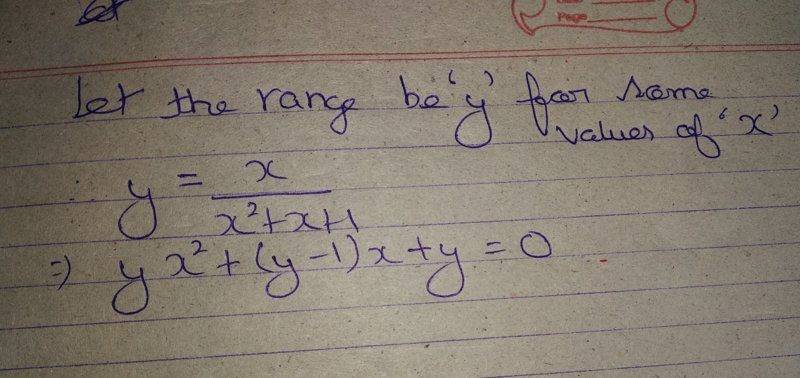 let
Page
Let the range be 'y' for some
values of 'x'
∴ y = x / (x²+x+1)
⇒ yx² + (y-1)x + y = 0